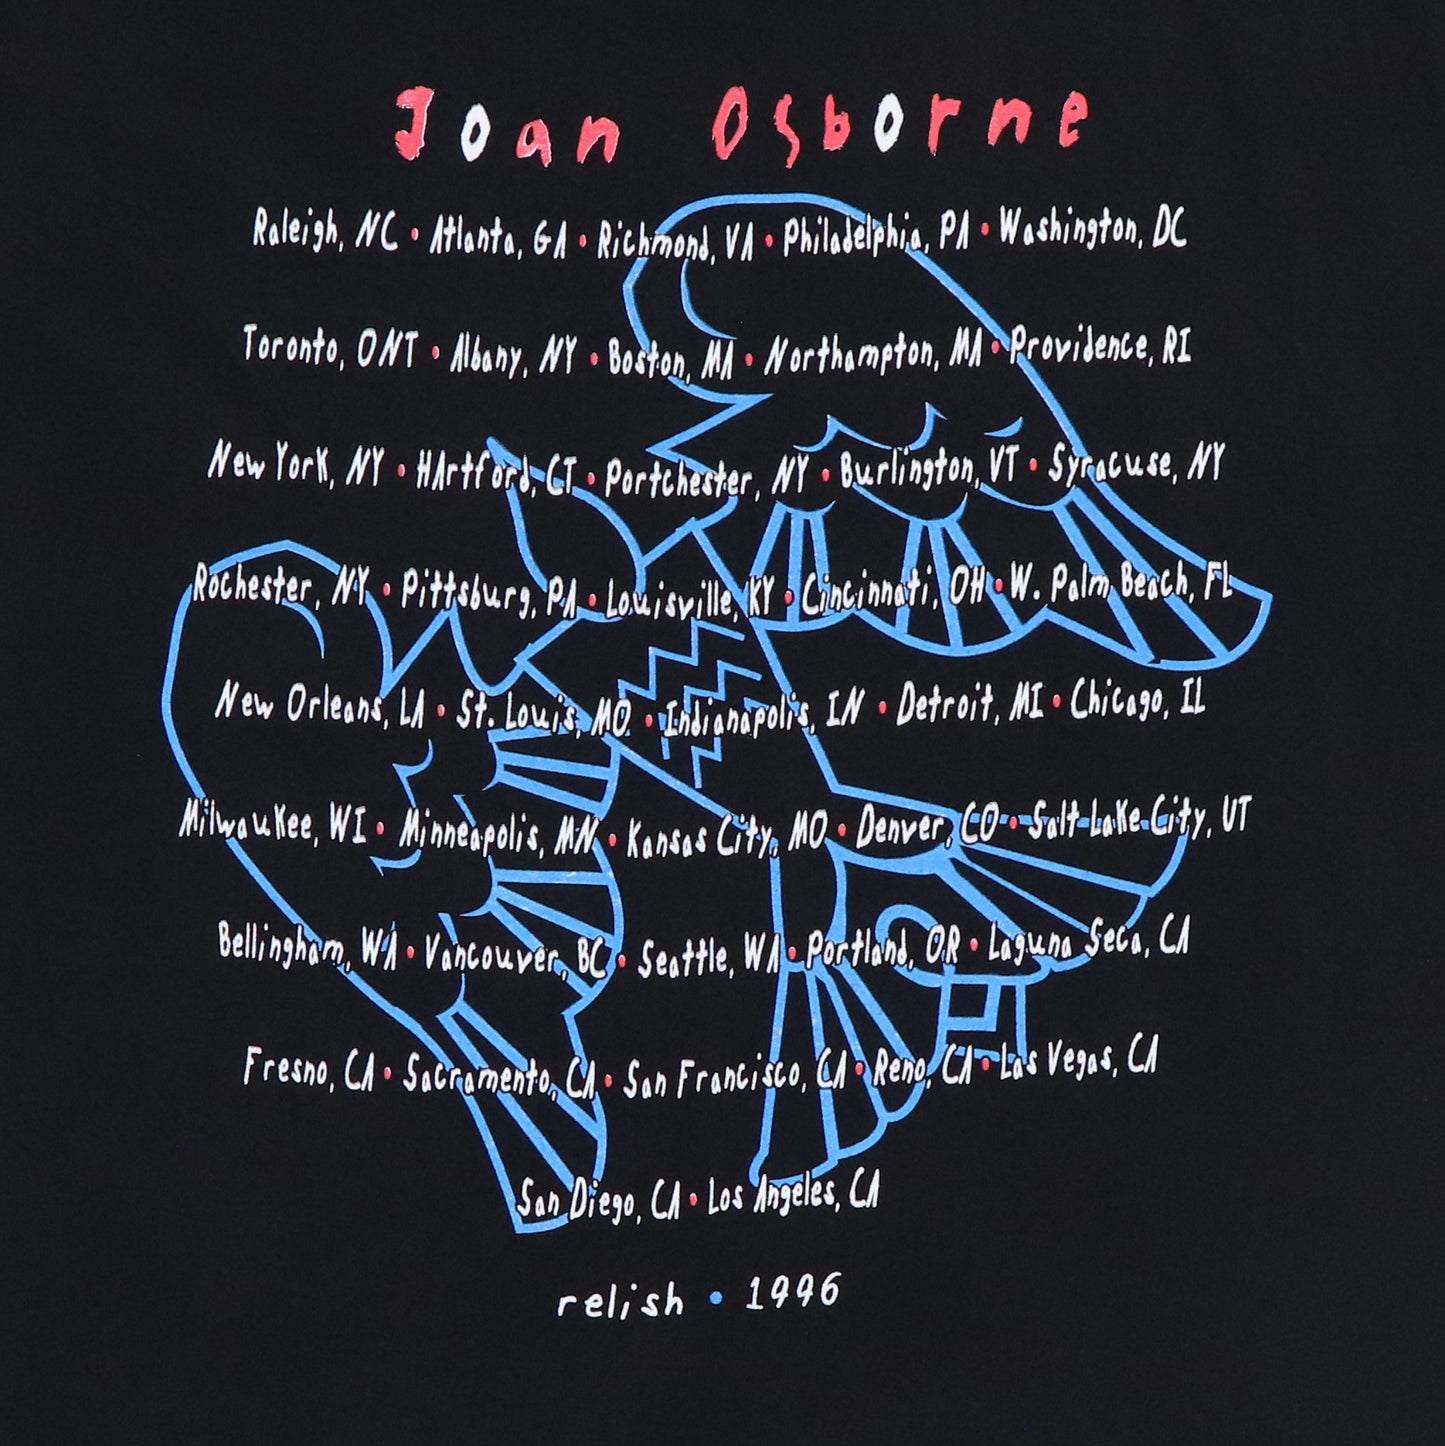 Joan Osborne
Raleigh, NC • Atlanta, GA • Richmond, VA • Philadelphia, PA • Washington, DC
Toronto, ONT • Albany, NY • Boston, MA • Northampton, MA • Providence, RI
New York, NY • HArtford, CT • Portchester, NY • Burlington, VT • Syracuse, NY
Rochester, NY • Pittsburg, PA • Louisville, KY • Cincinnati, OH • W. Palm Beach, FL
New Orleans, LA • St. Louis, MO • Indianapolis, IN • Detroit, MI • Chicago, IL
Milwaukee, WI • Minneapolis, MN • Kansas City, MO • Denver, CO • Salt Lake City, UT
Bellingham, WA • Vancouver, BC • Seattle, WA • Portland, OR • Laguna Seca, CA
Fresno, CA • Sacramento, CA • San Francisco, CA • Reno, CA • Las Vegas, CA
San Diego, CA • Los Angeles, CA
relish • 1996